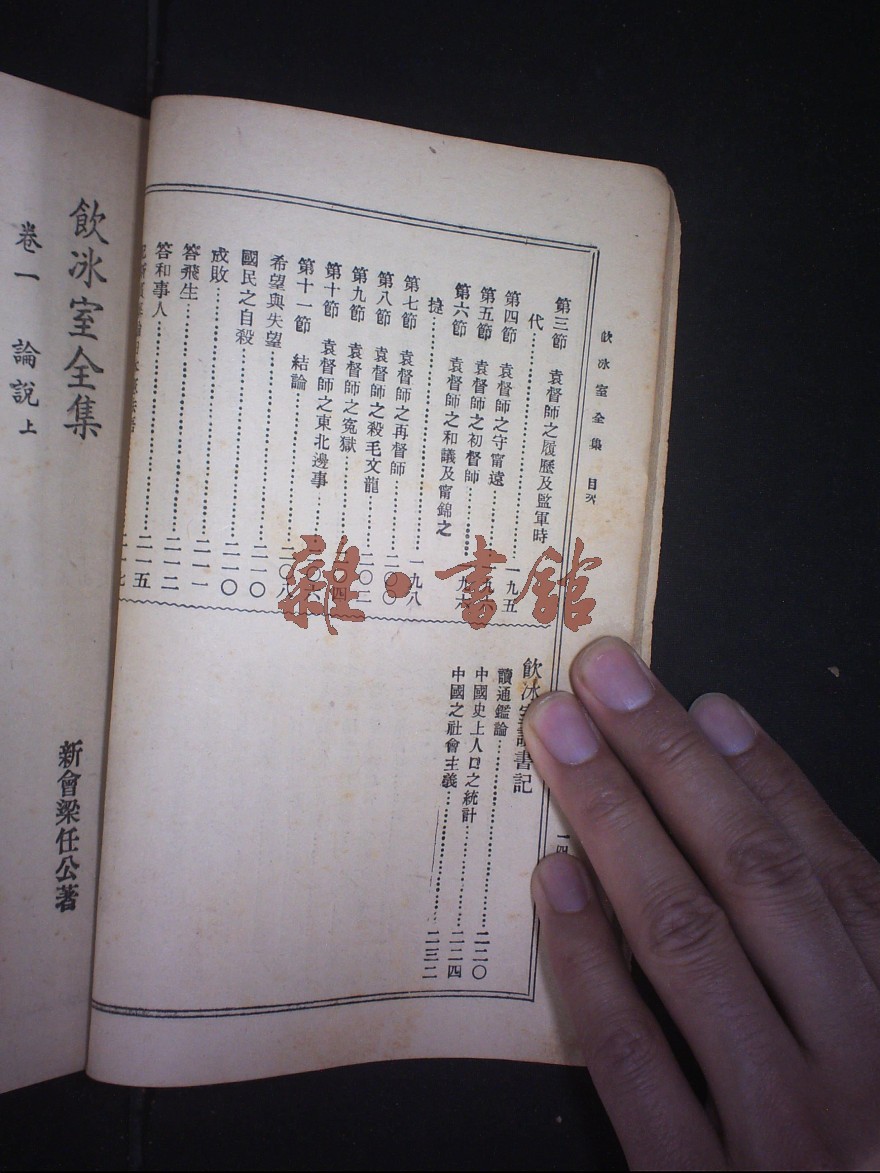 飲冰室全集 目次
第三節 袁督師之履歷及監軍時
代
第四節 袁督師之守甯遠 一九五
第五節 袁督師之初督師
第六節 袁督師之和議及甯錦之
捷
第七節 袁督師之再督師 一九八
第八節 袁督師之殺毛文龍 二〇〇
第九節 袁督師之冤獄 二〇二
第十節 袁督師之東北邊事
第十一節 結論
希望與失望 二〇八
國民之自殺 二一〇
成敗 二一〇
答飛生 二一一
答和事人 二一二
二一五
二一七
飲冰室讀書記
讀通鑑論 二二〇
中國史上人口之統計 二二四
中國之社會主義 二三二
飲冰室全集
卷一 論說上
新會梁任公著
雜·書館